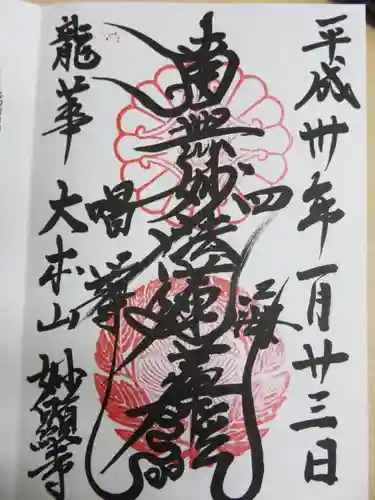 平成卅年一月廿三日
四海
南無妙法蓮華経
唱導
龍華
大本山
妙顯寺